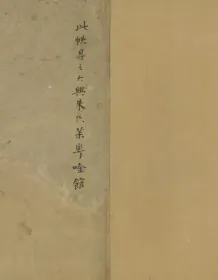 此帙得之大興朱氏茮華唫館